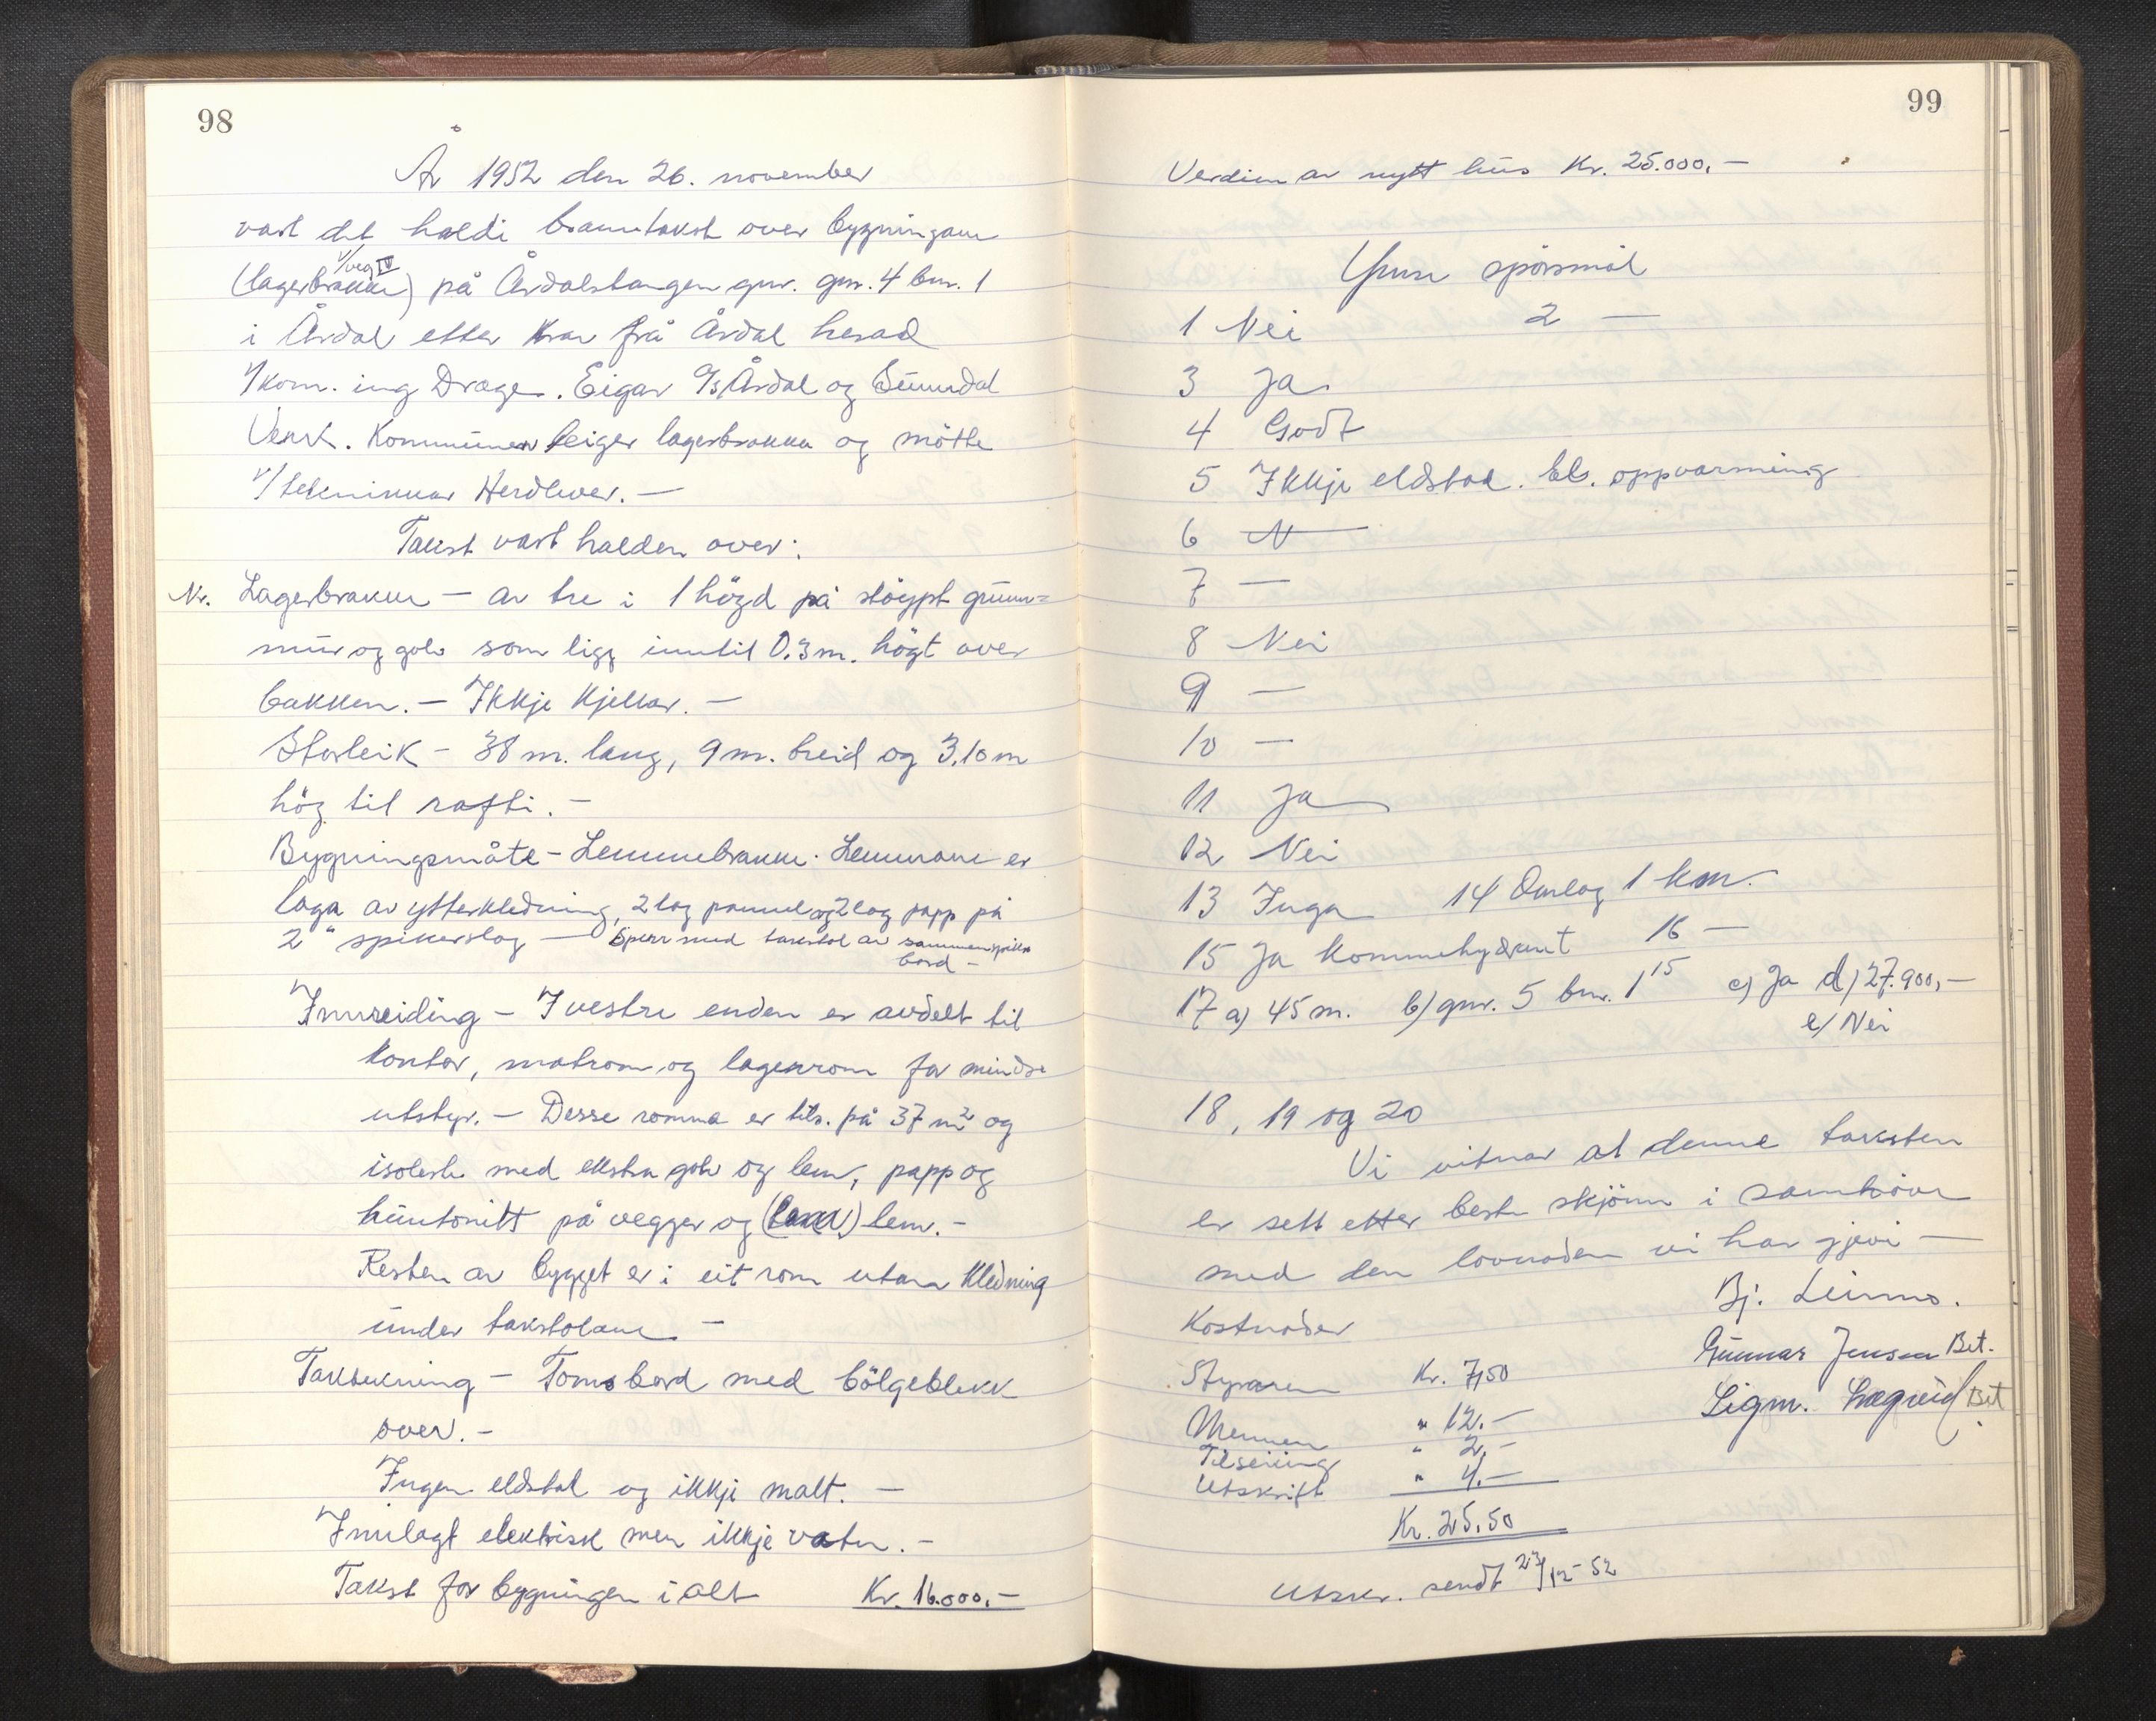 98
År 1952 den 26. november
vart det haldi branntakst over bygningane
v/veg IV
(lagerbrakke) på Årdalstangen gnr. gnr. 4 bnr. 1
i Årdal etter krav frå Årdal herad
v/kom. ing Drage. Eigar A/S Årdal og Sunndal
Verk. Kommunen leiger lagerbrakka og mötte
v/teknikkar Herdlever. —
Takst vart halden over:
Nr. Lagerbrakke — av tre i 1 högd på stöypt grunn=
mur og golv som ligg inntil 0.3 m. högt over
bakken. — Ikkje kjellar. —
Storleik — 38 m. lang, 9 m. breid og 3.10 m
hög til rafti. —
Bygningsmåte — Lemmebrakke. Lemmane er
laga av ytterkledning, 2 lag pannel og 2 lag papp på
2" spikerslag — Sperr med takstol av sammenspikra
bord —
Innreiding — I vestre enden er avdelt til
kontor, matrom og lagerrom for mindre
utstyr. — Desse romma er tils. på 37 m² og
isolerte med ekstra golv og lem, papp og
huntonitt på vegger og () lem. —
Resten av bygget er i eit rom utan kledning
under takstolane —
Taktekning — Tomsbord med bölgeblekk
over. —
Ingen eldstad og ikkje malt. —
Innlagt elektrisk men ikkje vatn. —
Takst for bygningen i alt Kr. 16.000,—
99
Verdien av nytt hus Kr. 25.000,—
Ymse spörsmål
1 Nei 2 —
3 Ja
4 Godt
5 Ikkje eldstad. El. oppvarming
6 —
7 —
8 Nei
9 —
10 —
11 Ja
12 Nei
13 Inga 14 Omlag 1 km.
15 Ja kommehydrant 16 —
17 a) 45 m. b) gnr. 5 bnr. 1 15 c) Ja d) 27.900,—
e) Nei
18, 19 og 20
Vi vitnar at denne taksten
er sett etter beste skjönn i samhöve
med den lovnaden vi har gjevi —
Bj. Leirmo.
Kostnader
Gunnar Jensen Bet.
Styraren Kr. 7,50
Sigm. Lægreid Bet
Mennen " 12.—
Tilseiing " 2,—
Utskrift " 4.—
Kr. 25,50
Utskr. sendt 23/12-52